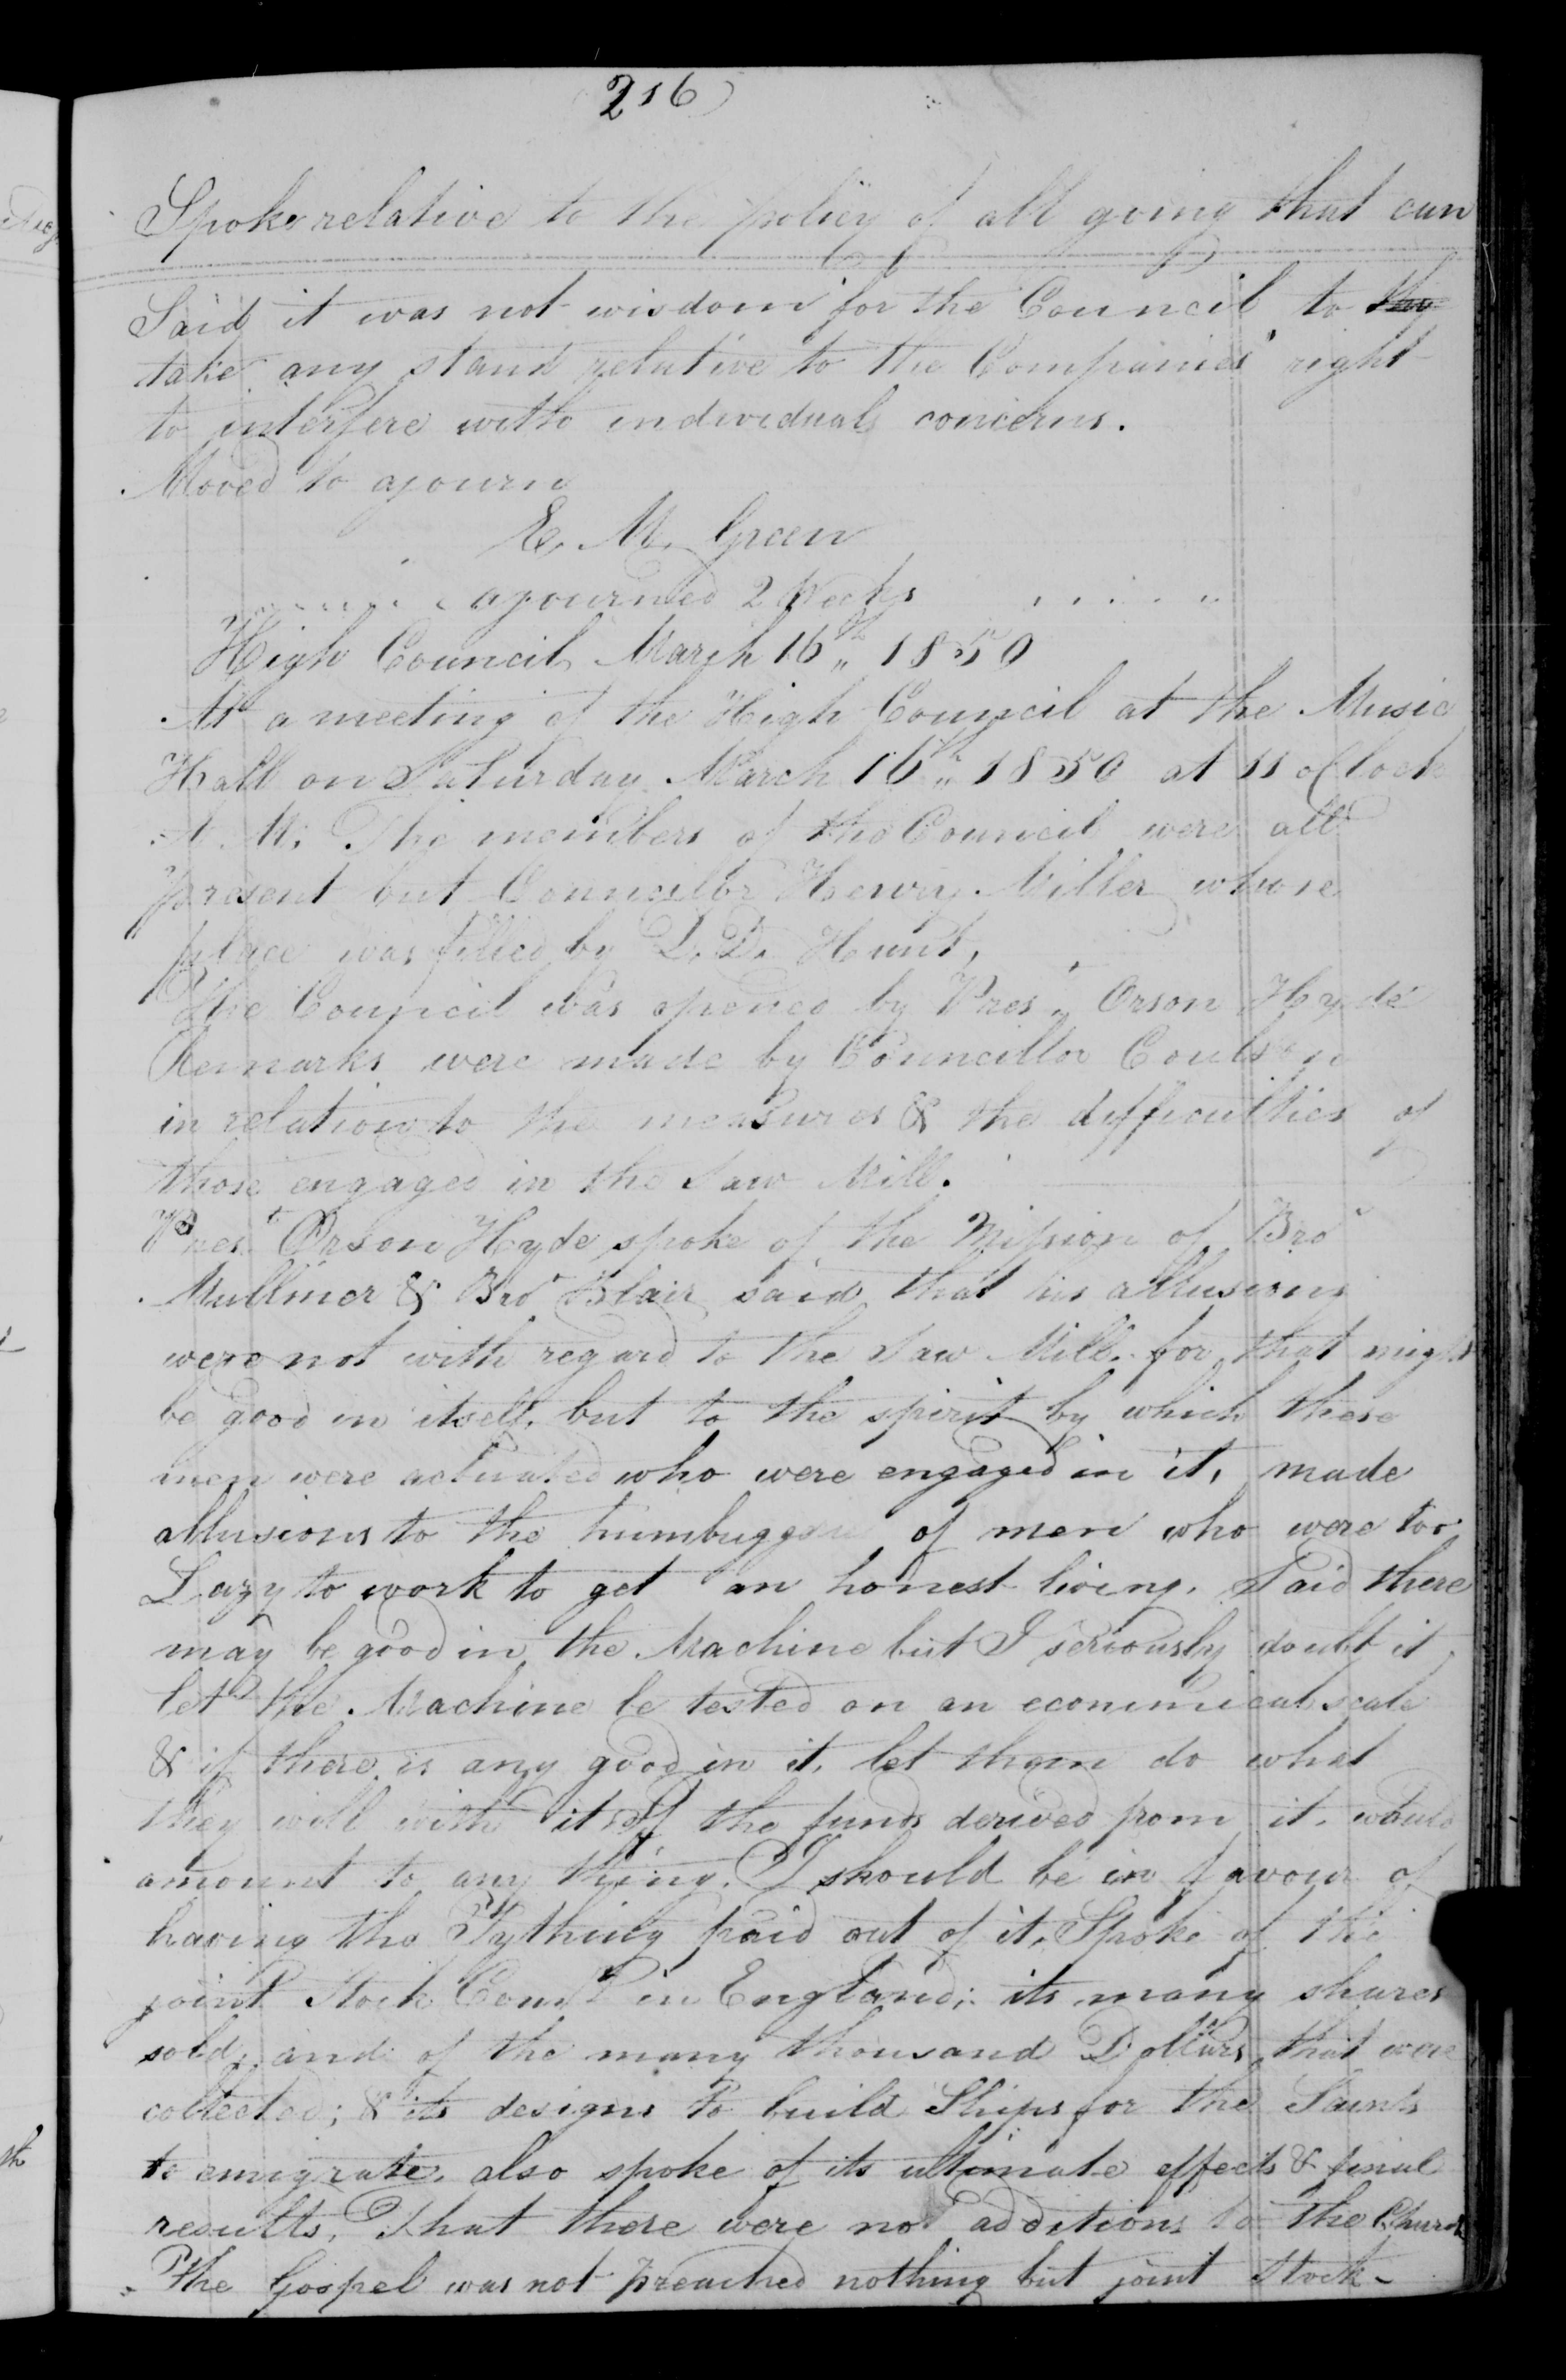 216
Spoke relative to the policy of all going that can
Said it was not wisdom for the Council to
take any stand relative to the Companies right
to interfere with individuals concerns.
Moved to ajourn
E. M. Green
ajourned 2 Weeks
High Council March 16th 1850
At a meeting of the High Council at the Music
Hall on Saturday March 16th 1850 at 11 oClock
A. M. The members of the Council were all
present but Councillor Henry Miller whose
place was filled by D. D. Hunt,
The Council was opened by Prest Orson Hyde
Remarks were made by Councillor Coulson
in relation to the measures & the difficulties of
those engaged in the Saw Mill.
Prest Orson Hyde spoke of the Mission of Bro
Mullinor & Bro Blair said that his allusions
were not with regard to the Saw Mill. for that might
be good in itself, but to the spirit by which these
men were actuated who were engaged in it, made
allusions to the of men who were too
Lazy to work to get an honest living. Said there
may be good in the Machine but I seriously doubt it
let the Machine be tested on an economical scale
& if there is any good in it, let them do what
they will with it If the funds derived from it. would
amount to any thing. I should be in favour of
having the Tything paid out of it. Spoke of the
joint Stock in England; its many shares
sold; and of the many thousand Dollars that were
collected; & its designs to build Ships for the Saints
to emigrate. also spoke of its ultimate effects & final
results, That there were not additions to the Church
The Gospel was not preached nothing but joint Stock-